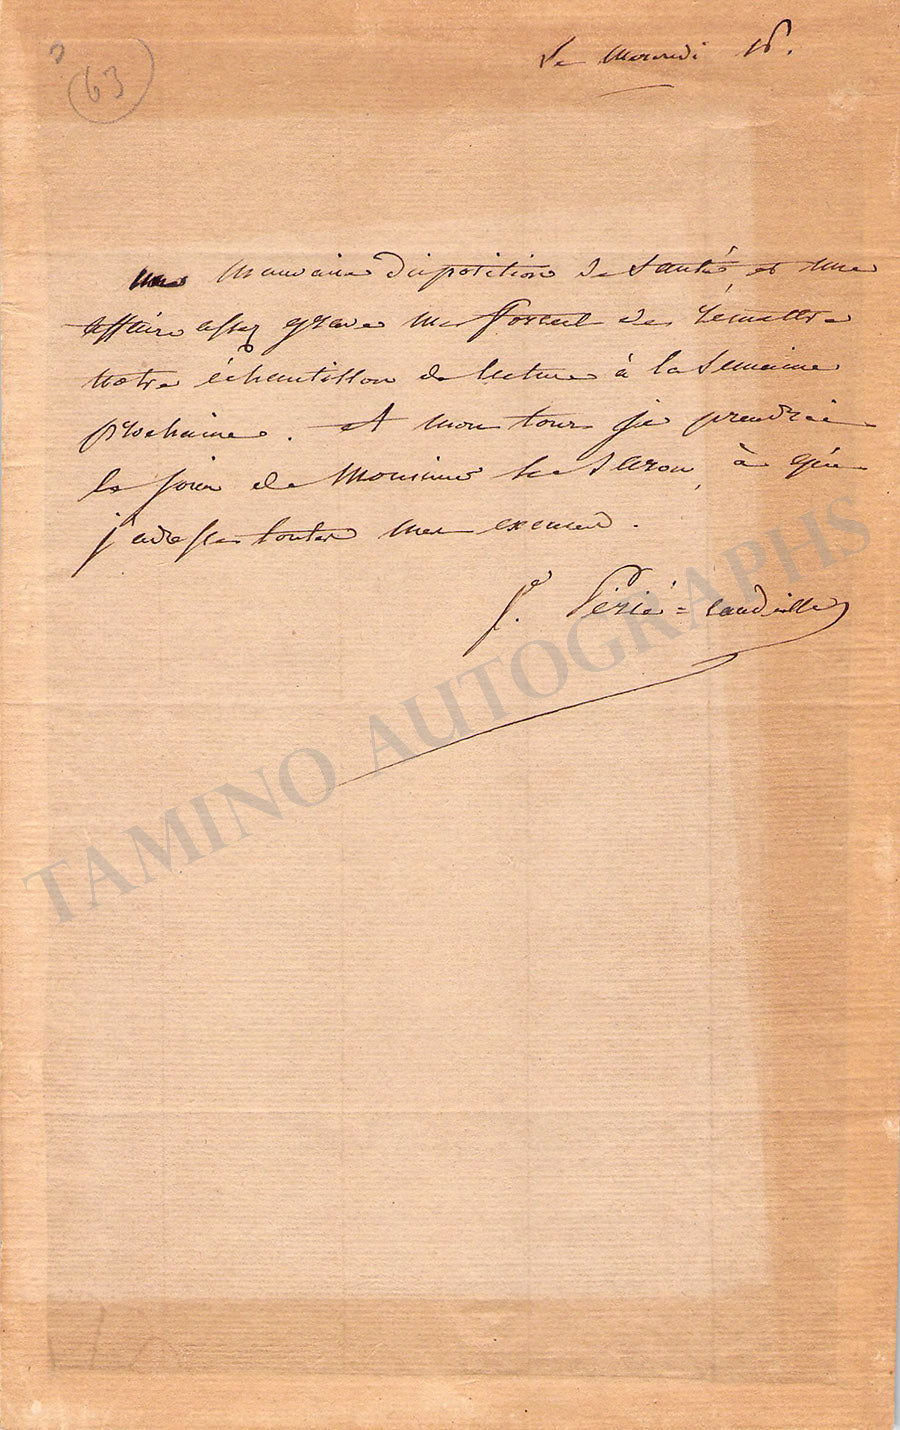 ?
63
Le Mercredi 16.
Une Mauvaise disposition de Santé et une
affaire assez grave me forcent de remettre
notre échantillon de lecture à la Semaine
prochaine. A mon tour je prendrai
le jour de Monsieur le Baron, à qui
j'adresse toutes mes excuses.
F. Périé-Candeille
TAMINO AUTOGRAPHS